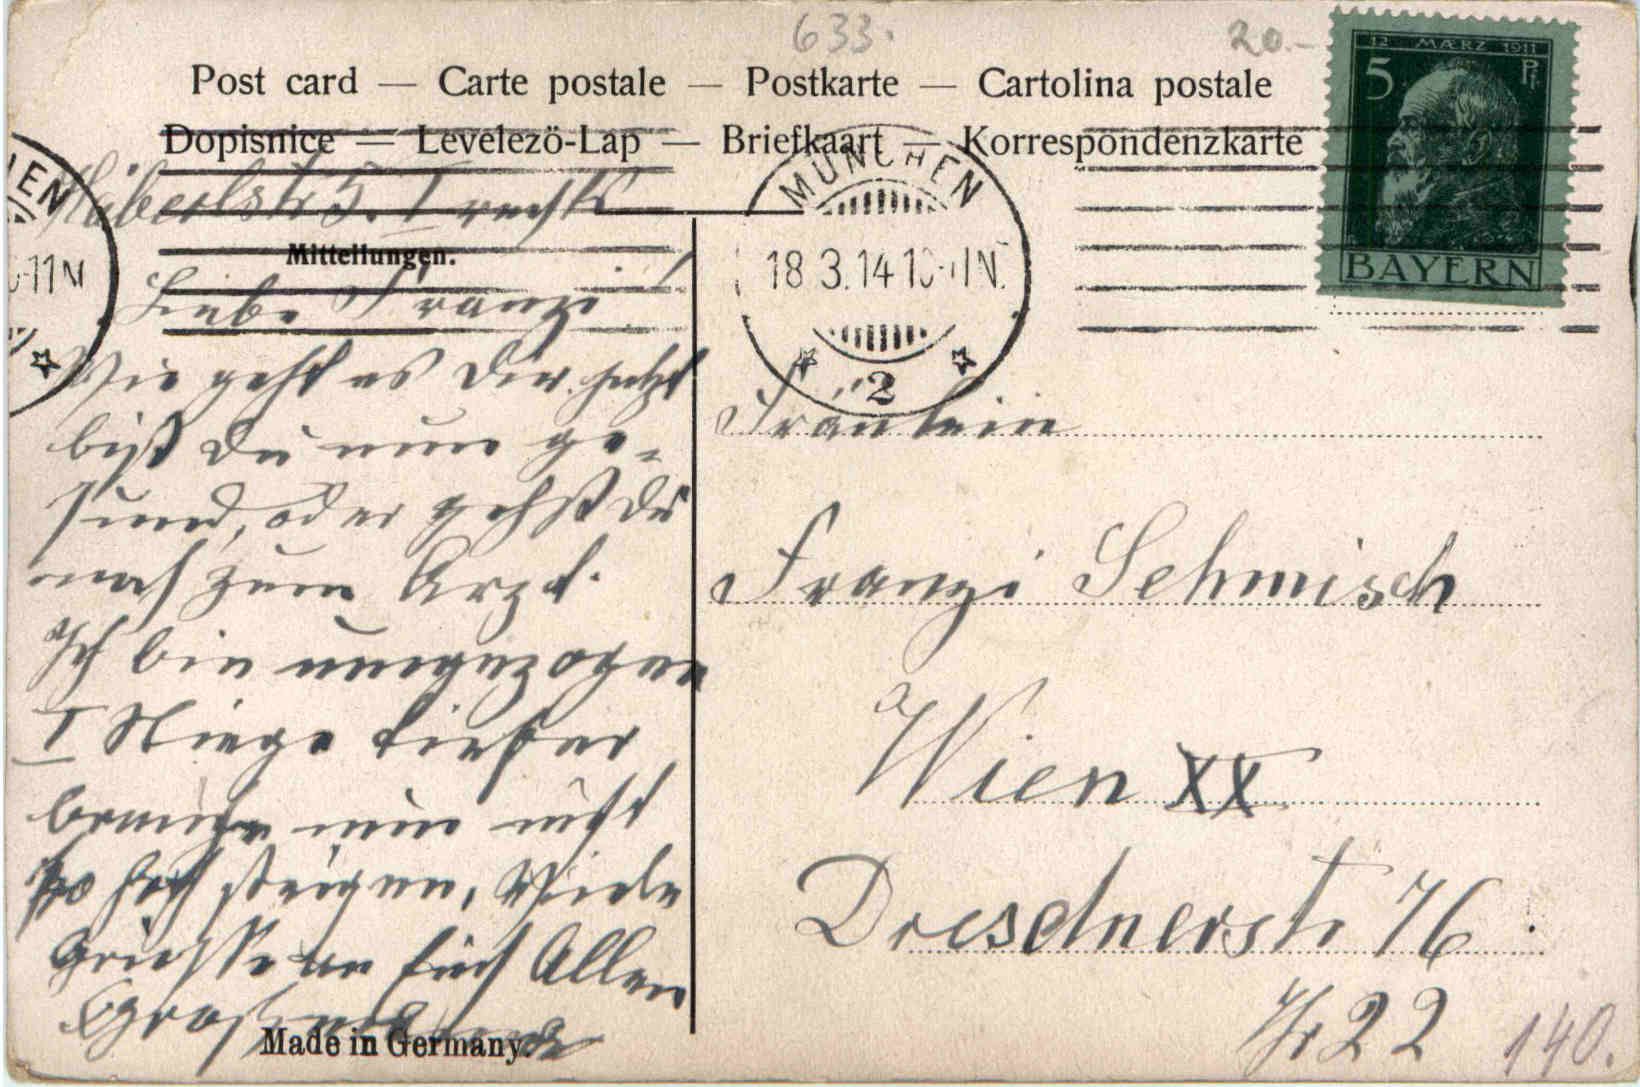 633.
20.-
Post card — Carte postale — Postkarte — Cartolina postale
Dopisnice — Levelezö-Lap — Briefkaart — Korrespondenzkarte
12 MÆRZ 1911
5 Pf.
BAYERN
MÜNCHEN
18 3.14 10-11N.
2
HEN
-11N
Häberlstr 5. I rechts
Mitteilungen.
Liebe Franzi!
Wie geht es Dir. jetzt
bist Du nun ge-
sund, oder gehst Du
noch zum Arzt.
Ich bin umgezogen
I Stiege tiefer
brauche nun nicht
so hoch steigen, Viele
Grüsse an Euch Allen
Made in Germany.
Fräulein
Franzi Schmisch
Wien XX
Dresdnerstr 76
Tr 22
140.